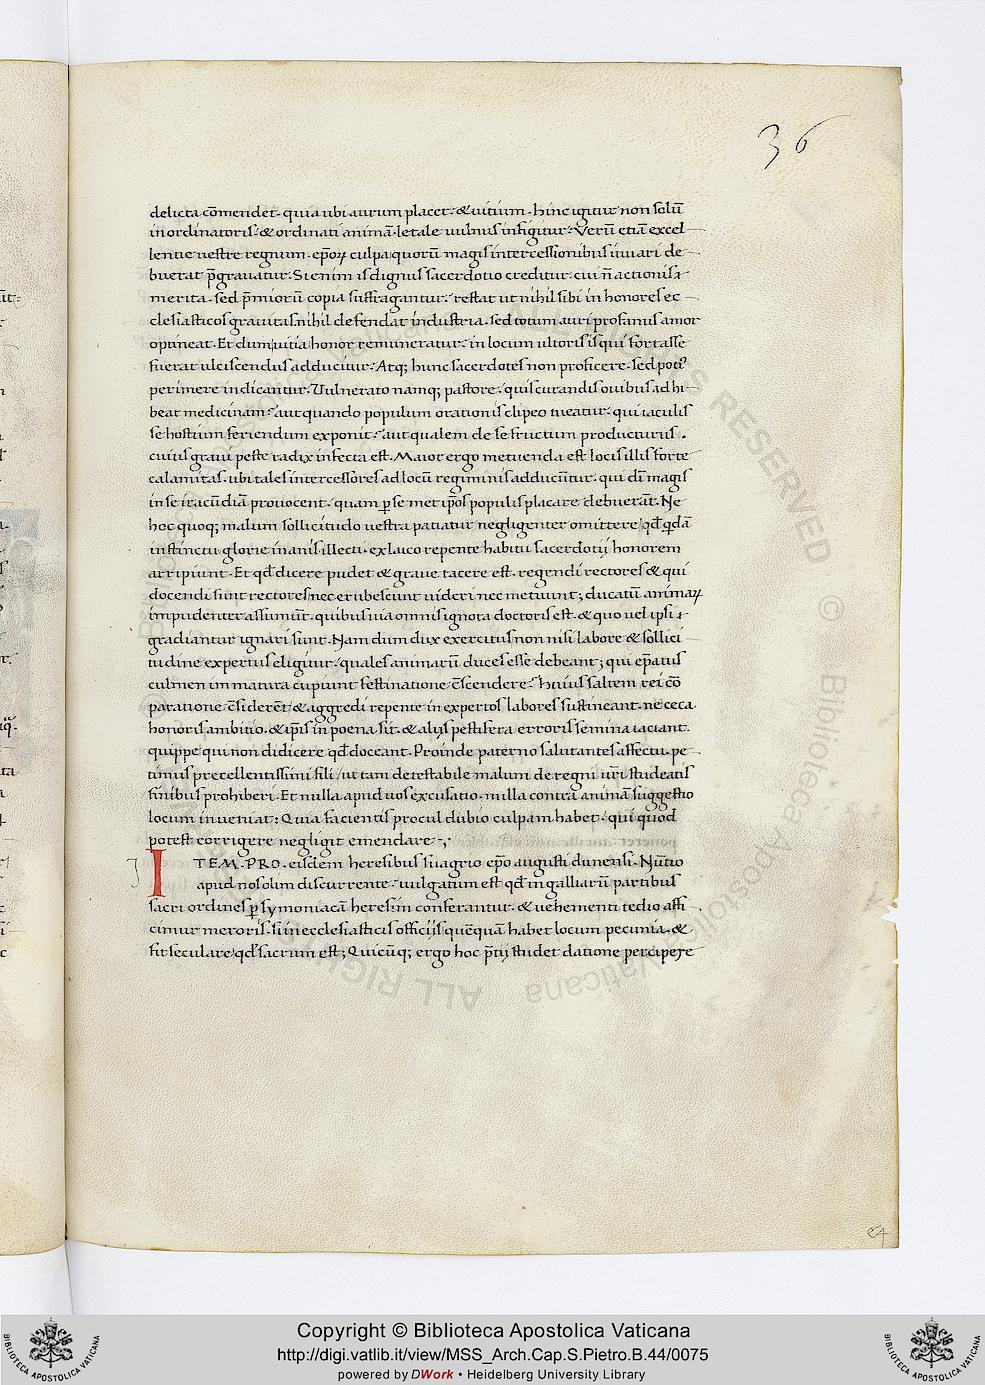 36
delicta cōmendet. quia ubi aurum placet: & uitium. hinc igitur non solū
in ordinatoris: & ordinati animā. letale uulnus infigitur: Verū etiā excel
lentie uestre regnum. ep̄oꝝ culpa quorū magis intercessionibus iuuari de
buerat p̄grauatur. Si enim is dignus sacerdotio creditur. cui n̄ actionis
merita. sed p̄miorū copia suffragantur: restat ut nihil sibi in honores ec
clesiasticos grauitas. nihil defendat industria. sed totum auri profanus amor
optineat. Et dum uitia honor remuneratur: in locum ultoris is qui fortasse
fuerat ulciscendus adducitur. Atq; hunc sacerdotes non proficere. sed poti᾽
perimere indicantur. Uulnerato namq; pastore: quis curandis ouibus adhi
beat medicinam: aut quando populum orationis clipeo tueatur. qui iaculis
se hostium feriendum exponit: aut qualem de se fructum producturus.
cuius graui peste radix infecta est. Maior ergo metuenda est locis illis forte
calamitas. ubi tales intercessores ad locū regiminis adducūtur. qui dī magis
in se iracūdiā prouocent. quam p̱ se met ip̄os populis placare debuerāt. Ne
hoc quoq; malum sollicitudo uestra patiatur negligenter omittere qd̄ q̄dā
instinctu glorie inanis illecti. ex laico repente habitu sacerdotij honorem
arripiunt. Et qd̄ dicere pudet & graue tacere est. regendi rectores & qui
docendi sunt rectores nec erubescunt uideri nec metuunt; ducatū animaꝝ
impudenter assumūt. quibus uia omnis ignota doctoris est. & quo uel ipsi
gradiantur ignari sunt. Nam dum dux exercitus non nisi labore & sollici
tudine expertus eligitur. quales animarū duces esse debeant; qui ep̄atus
culmen immatura cupiunt festinatione c̄scendere: huius saltem rei cō
paratione c̄siderēt & aggredi repente inexpertos labores sustineant. ne ceca
honoris ambitio. & ip̄is in poena sit. & alijs pestifera erroris semina iaciant.
quippe qui non didicere qd̄ doceant. Proinde paterno salutantes affectu. pe
timus precellentissimi fili / ut tam detestabile malum de regni ur̄i studeatis
finibus prohiberi. Et nulla apud uos excusatio. nulla contra animā suggestio
locum inueniat: Quia facientis procul dubio culpam habet. qui quod
potest corrigere negligit emendare:
ITEM. PRO. eisdem heresibus siuagrio ep̄o augusti dunensi. Nūtio
apud nos olim discurrente. uulgatum est qd̄ in galliarū partibus
sacri ordines p̱ symoniacā heresin conferantur. & uehementi tedio affi
cimur meroris. si in ecclesiasticis officijs quēquā habet locum pecunia. &
fit seculare qd̄ sacrum est; Quicūq; ergo hoc p̄tij studet datione percipere
Copyright © Biblioteca Apostolica Vaticana
http://digi.vatlib.it/view/MSS_Arch.Cap.S.Pietro.B.44/0075
powered by DWork • Heidelberg University Library